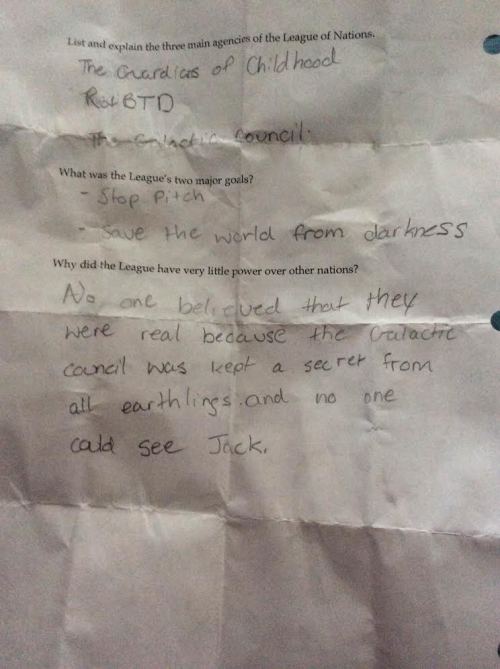 List and explain the three main agencies of the League of Nations.
The Guardias of Childhood
RotBTD
The Galactic Council.
What was the League's two major goals?
- Stop Pitch
- Save the world from darkness
Why did the League have very little power over other nations?
No one believed that they
were real because the Galactic
council was kept a secret from
all earthlings. and no one
could see Jack.